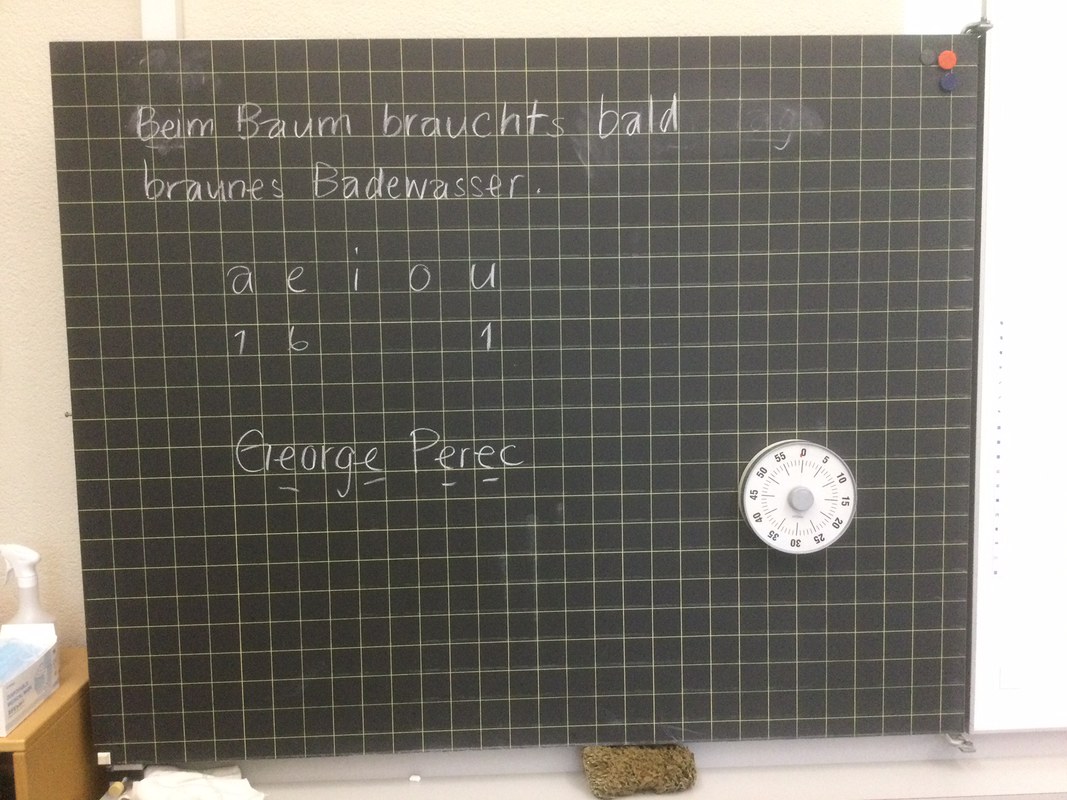 Beim Baum brauchts bald
braunes Badewasser.
a e i o u
1 6 1
George Perec
0 5 10 15 20 25 30 35 40 45 50 55